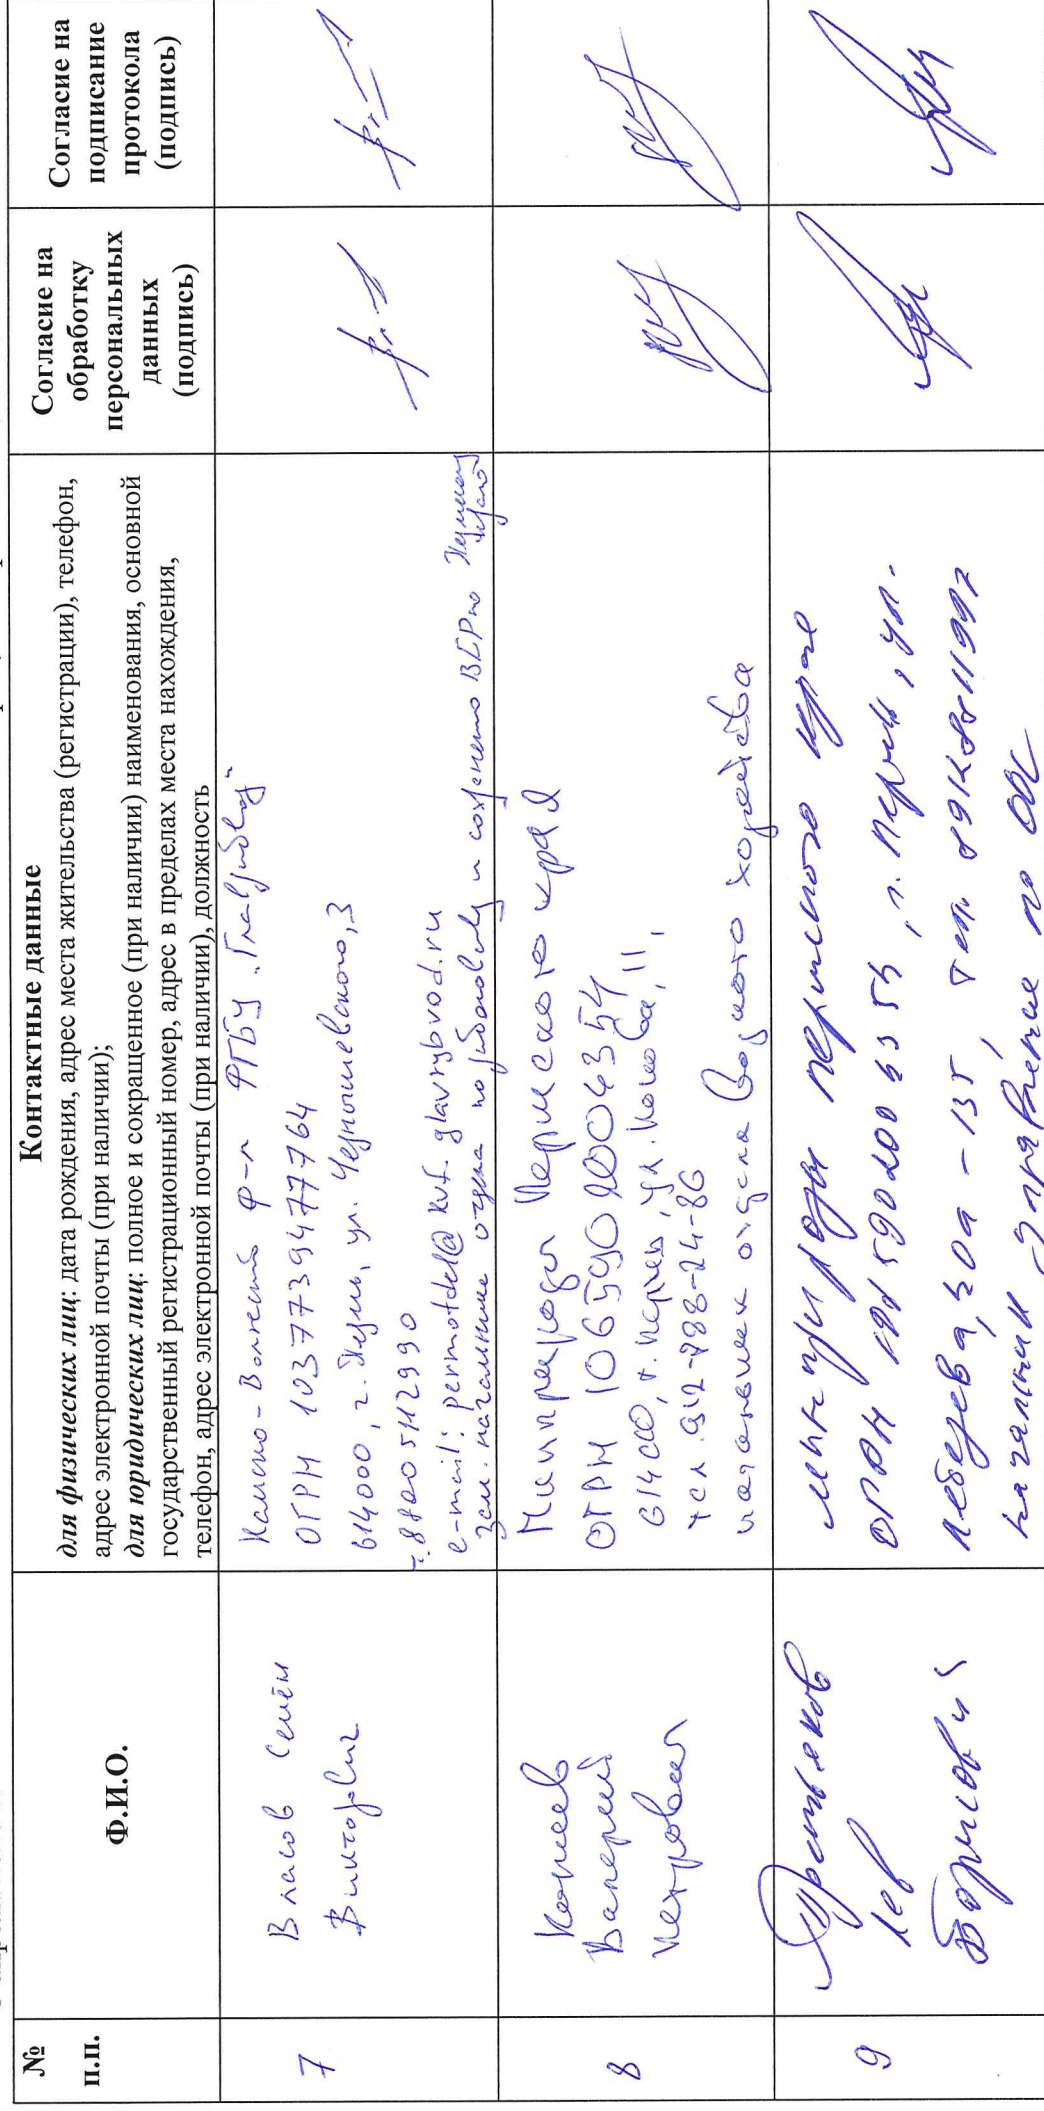 №
п.п.
Ф.И.О.
Контактные данные
для физических лиц: дата рождения, адрес места жительства (регистрации), телефон,
адрес электронной почты (при наличии);
для юридических лиц: полное и сокращенное (при наличии) наименования, основной
государственный регистрационный номер, адрес в пределах места нахождения,
телефон, адрес электронной почты (при наличии), должность
Согласие на
обработку
персональных
данных
(подпись)
Согласие на
подписание
протокола
(подпись)
7
Власов Семён
Викторович
Камско-Волжский ф-л ФГБУ "Главрыбвод"
ОГРН 1037739477764
614000, г. Пермь, ул. Чернышевского, 3
т. 88005112990
e-mail: permotdel@kvf.glavrybvod.ru
зам. начальника отдела по рыбоводству и сохранению ВБР по Пермскому краю
8
Корнеев
Валерий
Петрович
Минприроды Пермского края
ОГРН 1065902004354
614000, г. Пермь, ул. Попова, 11,
тел. 912-788-24-86
начальник отдела водного хозяйства
9
Третьяков
Лев
Борисович
Минприроды Пермского края
ОГРН , г. Пермь, ул.
Лебедева, 30а - 135, тел.
начальник управления по ООС